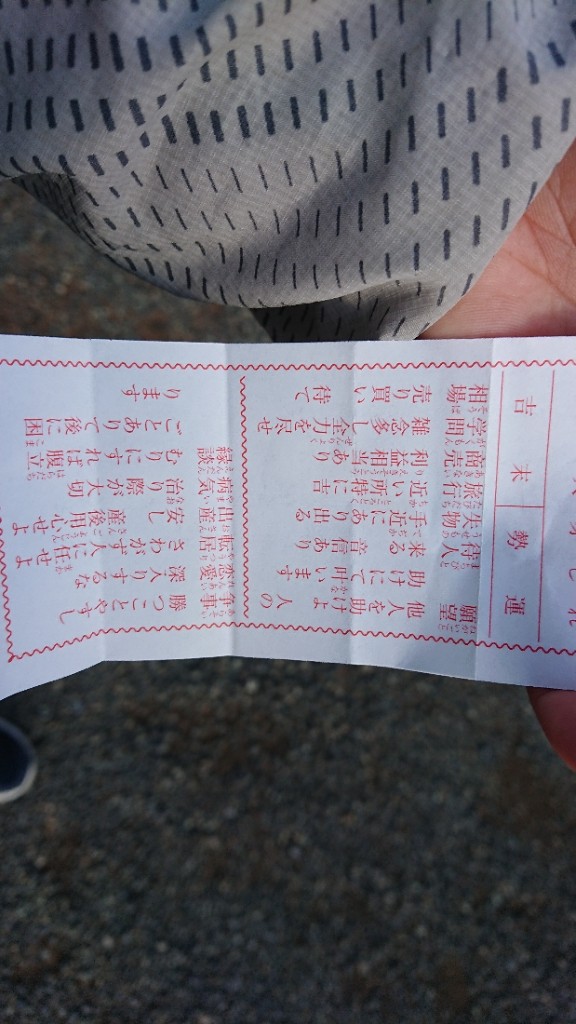 運勢 末吉
願望 他人を助けよ 人の
助けにて叶います
待人 来る 音信あり
失物 手近にあり 出る
旅行 近い所特に吉
商売 利益相当あり
学問 雑念多し 全力を尽せ
相場 売り買い待て
争事 勝つことやすし
恋愛 深入りするな
転居 さわがず人に任せよ
出産 安し 産後用心せよ
病気 治り際が大切
縁談 むりにすれば腹立
ごとありて後に困
ります